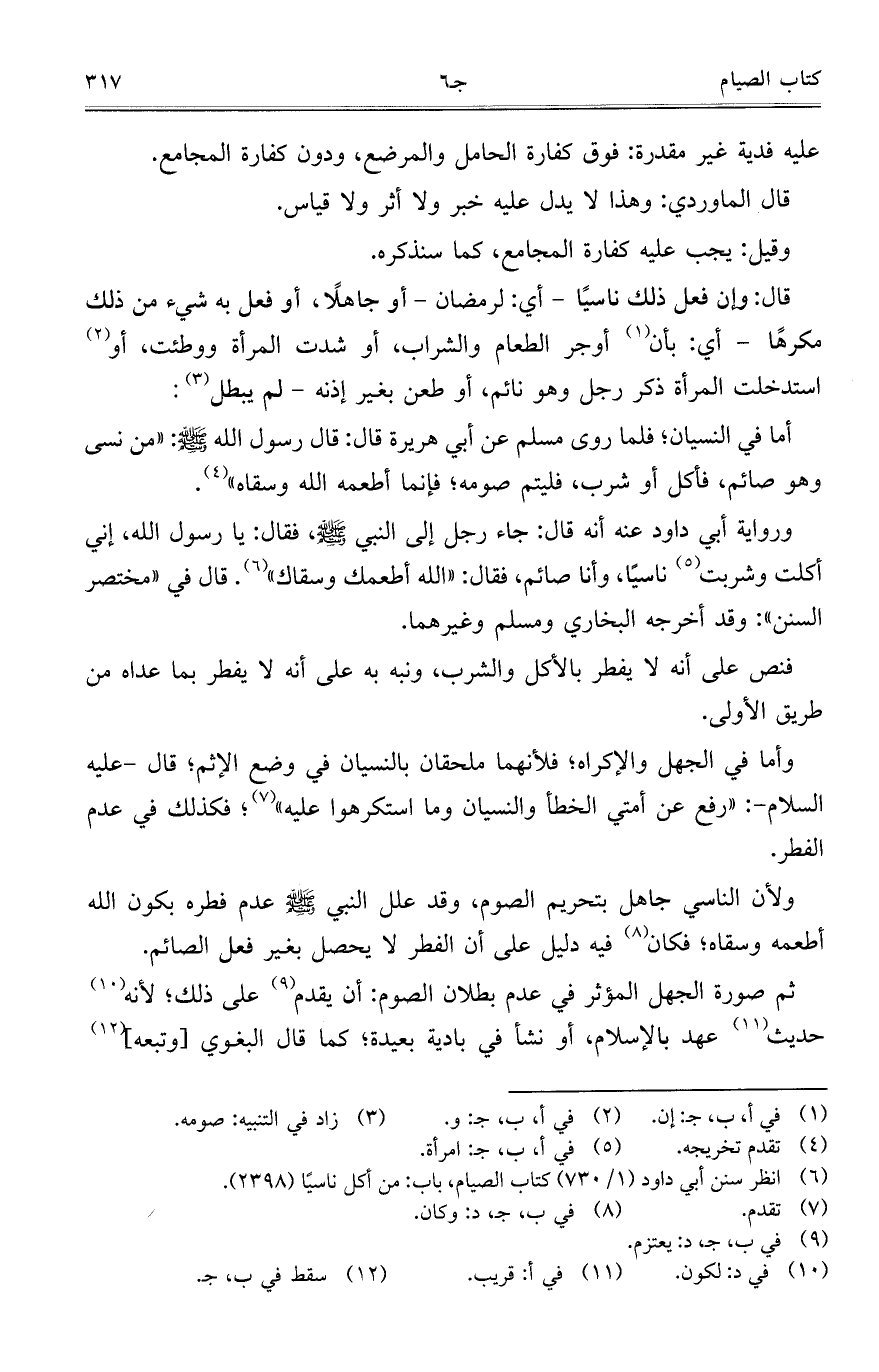 كتاب الصيام جـ٦ ٣١٧
عليه فدية غير مقدرة: فوق كفارة الحامل والمرضع، ودون كفارة المجامع.
قال الماوردي: وهذا لا يدل عليه خبر ولا أثر ولا قياس.
وقيل: يجب عليه كفارة المجامع، كما سنذكره.
قال: وإن فعل ذلك ناسيًا – أي: لرمضان – أو جاهلًا، أو فعل به شيء من ذلك
مكرهًا – أي: بأن(١) أوجر الطعام والشراب، أو شدت المرأة ووطئت، أو(٢)
استدخلت المرأة ذكر رجل وهو نائم، أو طعن بغير إذنه – لم يبطل(٣):
أما في النسيان؛ فلما روى مسلم عن أبي هريرة قال: قال رسول الله ﷺ: «من نسى
وهو صائم، فأكل أو شرب، فليتم صومه؛ فإنما أطعمه الله وسقاه»(٤).
ورواية أبي داود عنه أنه قال: جاء رجل إلى النبي ﷺ، فقال: يا رسول الله، إني
أكلت وشربت(٥) ناسيًا، وأنا صائم، فقال: «الله أطعمك وسقاك»(٦). قال في «مختصر
السنن»: وقد أخرجه البخاري ومسلم وغيرهما.
فنص على أنه لا يفطر بالأكل والشرب، ونبه به على أنه لا يفطر بما عداه من
طريق الأولى.
وأما في الجهل والإكراه؛ فلأنهما ملحقان بالنسيان في وضع الإثم؛ قال –عليه
السلام–: «رفع عن أمتي الخطأ والنسيان وما استكرهوا عليه»(٧)؛ فكذلك في عدم
الفطر.
ولأن الناسي جاهل بتحريم الصوم، وقد علل النبي ﷺ عدم فطره بكون الله
أطعمه وسقاه؛ فكان(٨) فيه دليل على أن الفطر لا يحصل بغير فعل الصائم.
ثم صورة الجهل المؤثر في عدم بطلان الصوم: أن يقدم(٩) على ذلك؛ لأنه(١٠)
حديث(١١) عهد بالإسلام، أو نشأ في بادية بعيدة؛ كما قال البغوي [وتبعه](١٢)
(١) في أ، ب، جـ: إن. (٢) في أ، ب، جـ: و. (٣) زاد في التنبيه: صومه.
(٤) تقدم تخريجه. (٥) في أ، ب، جـ: امرأة.
(٦) انظر سنن أبي داود (١/ ٧٣٠) كتاب الصيام، باب: من أكل ناسيًا (٢٣٩٨).
(٧) تقدم. (٨) في ب، جـ، د: وكان.
(٩) في ب، جـ، د: يعتزم.
(١٠) في د: لكون. (١١) في أ: قريب. (١٢) سقط في ب، جـ.